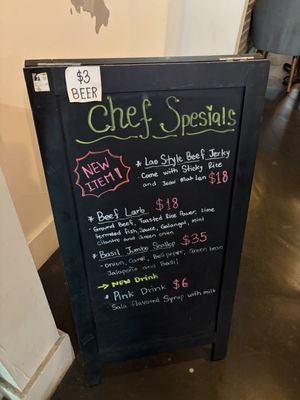 $3
BEER
Chef Specials
NEW
ITEM!
* Lao Style Beef Jerky
Come with Sticky Rice
and Jeow Mak Len $18
* Beef Larb $18
- Ground Beef, Toasted Rice Power, Lime
fermented Fish Sauce, Galangal, mint
Cilantro and Green onion
* Basil Jumbo Scallop $35
- onion, Carrot, Bell peper, Green bean
Jalapeño and Basil
→ New Drink
* Pink Drink $6
Sala Flavored Syrup with milk